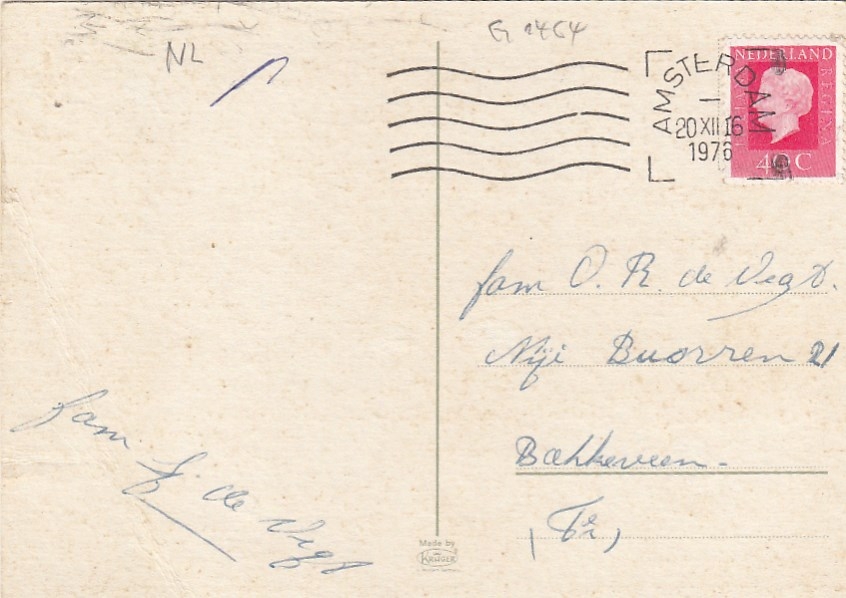 NL
G 2464
AMSTERDAM
20 XII 16
1976
NEDERLAND
REGINA
40 C
fam O. R. de Vegt.
Nije Buorren 21
Bakkeveen
(Fr)
fam de Vegt
Made by
KRÜGER